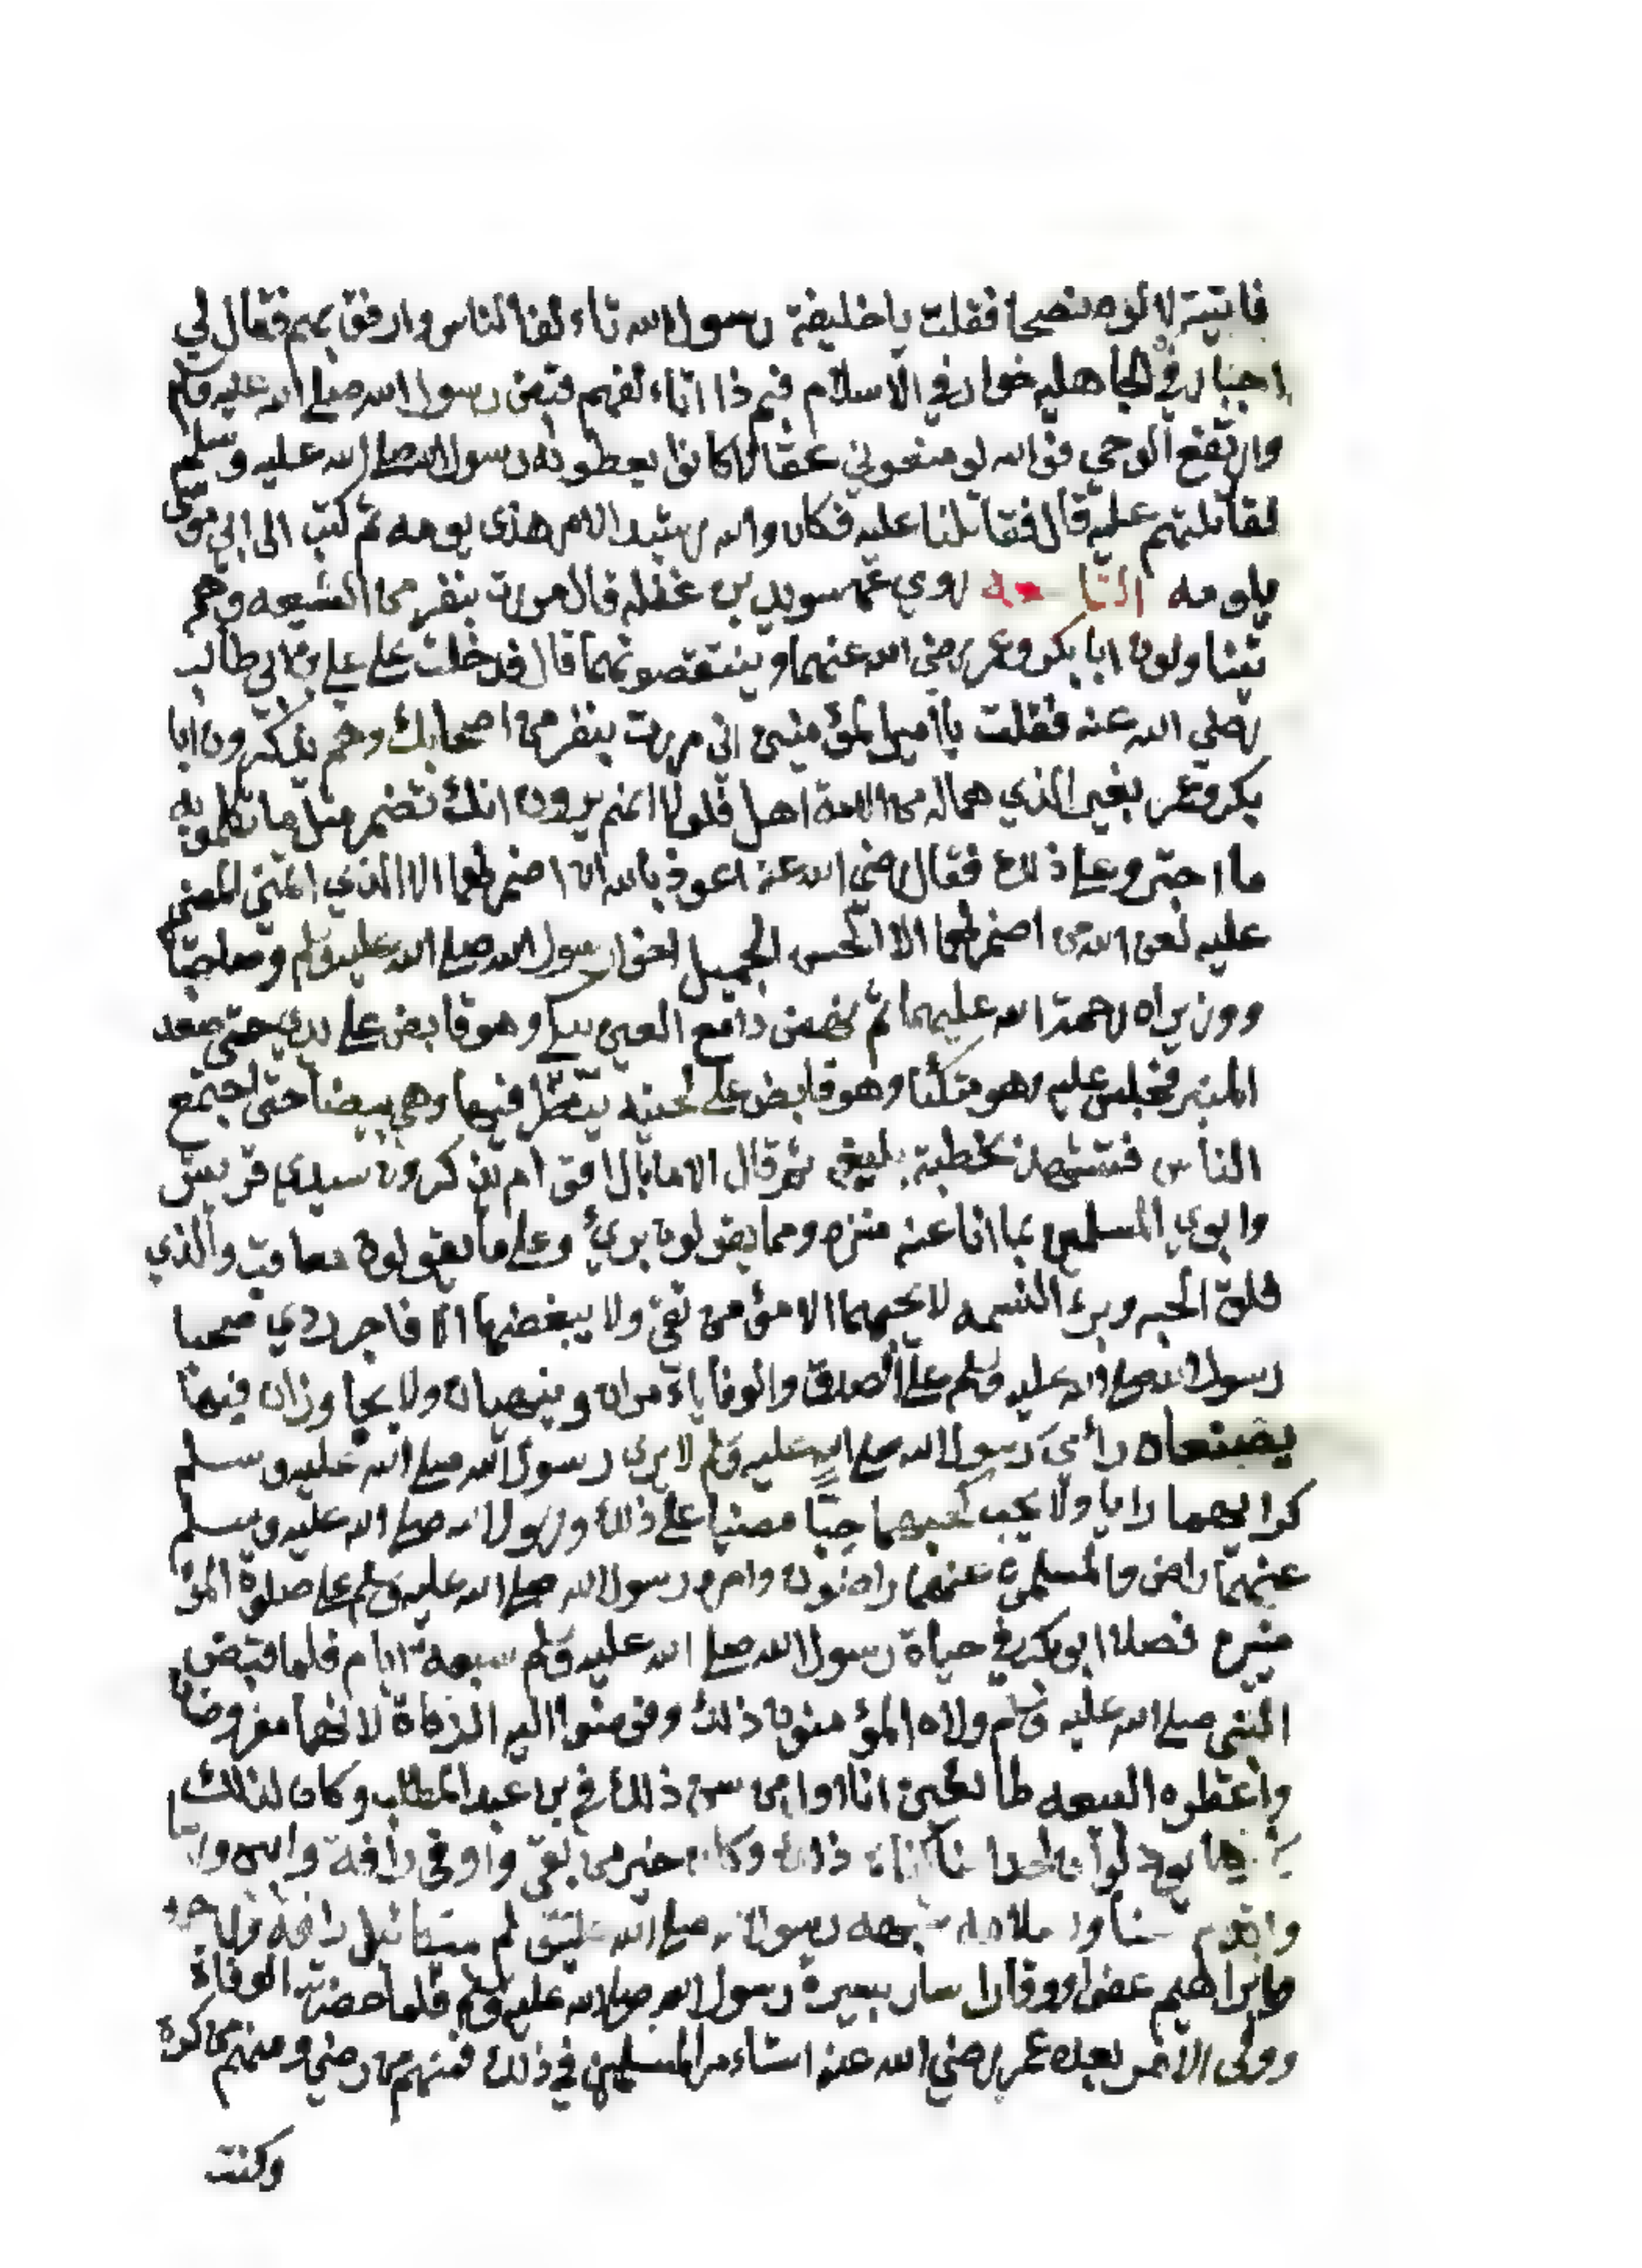 فاتيته لا الوه نصحا فقلت يا خليفة رسول الله تاءلف الناس وارفق بهم فقال لي
اجبار في الجاهليه خوار في الاسلام فبم ذا اتاءلفهم قبض رسول الله صلى الله عليه وسلم
وارتفع الوحي فوالله لو منعوني عقالا كانوا يعطونه رسول الله صلى الله عليه وسلم
لقاتلتهم عليه قال فقاتلنا عليه فكان والله رشيد الامر هذى يومه ثم كتب الى ابي موسى
يلومه روي عن سويد بن غفله قال مررت بنفر من الشيعه وهم
يتناولون ابا بكر وعمر رضي الله عنهما وينتقصونهما قال فدخلت على علي بن ابي طالب
رضي الله عنه فقلت يا امير المؤمنين اني مررت بنفر من اصحابك وهم يذكرون ابا
بكر وعمر بغير الذي هما له من الامة اهل فلولا انهم يرون انك تضمر مثل ما تكلموا به
ما اجتروا على ذلك فقال رضي الله عنه اعوذ بالله ان اضمر لهما الا الذي المضي
عليه لعن الله من اضمر لهما الا الحسن الجميل اخوا رسول الله صلى الله عليه وسلم وصاحبا
ووزيراه رحمة الله عليهما ثم نهض دامع العين يبكي وهو قابض على يدي حتى صعد
المنبر فجلس عليه وهو متكئا وهو قابض على لحيته ينظر فيها وهي بيضا حتى اجتمع
الناس فتشهد بخطبة بليغه ثم قال الا ما بال اقوام يذكرون سيدي قريش
وابوي المسلمين بما انا عنه متنزه ومما يقولون بري وعلى ما يقولون معاقب والذي
فلق الحبه وبرء النسمه لا يحبهما الا مؤمن تقي ولا يبغضهما الا فاجر ردي صحبا
رسول الله صلى الله عليه وسلم على الصدق والوفا ياءمران وينهيان ولا يجاوزان فيما
يصنعاه راي رسول الله صلى الله عليه وسلم لا يرى رسول الله صلى الله عليه وسلم
كرايهما رايا ولا يحب كحبهما حبا مضيا على ذلك ورسول الله صلى الله عليه وسلم
عنهما راض والمسلمون عنهما راضون وامره رسول الله صلى الله عليه وسلم على صلوة المؤ
منين فصلا ابو بكر في حياة رسول الله صلى الله عليه وسلم سبعة ايام فلما قبض
النبي صلى الله عليه وسلم ولاه المؤمنون ذلك وفوضوا اليه الزكاة لانهما مقرونتان
واعطوه البيعه طائعين انا اول من سن ذلك في بن عبد المطلب وكان لذلك
يود لو ان احدا منا كفاه ذلك وكان خير من بقي واوفى رافة
شبهه رسول الله صلى الله عليه وسلم بميكائيل رافة
وبابراهيم عفوا ووقارا سار بسيرة رسول الله صلى الله عليه وسلم فلما حضرته الوفاة
وولى الامر بعده عمر رضي الله عنه استاءمر المسلمين في ذلك فمنهم من رضي ومنهم من كره
وكنت